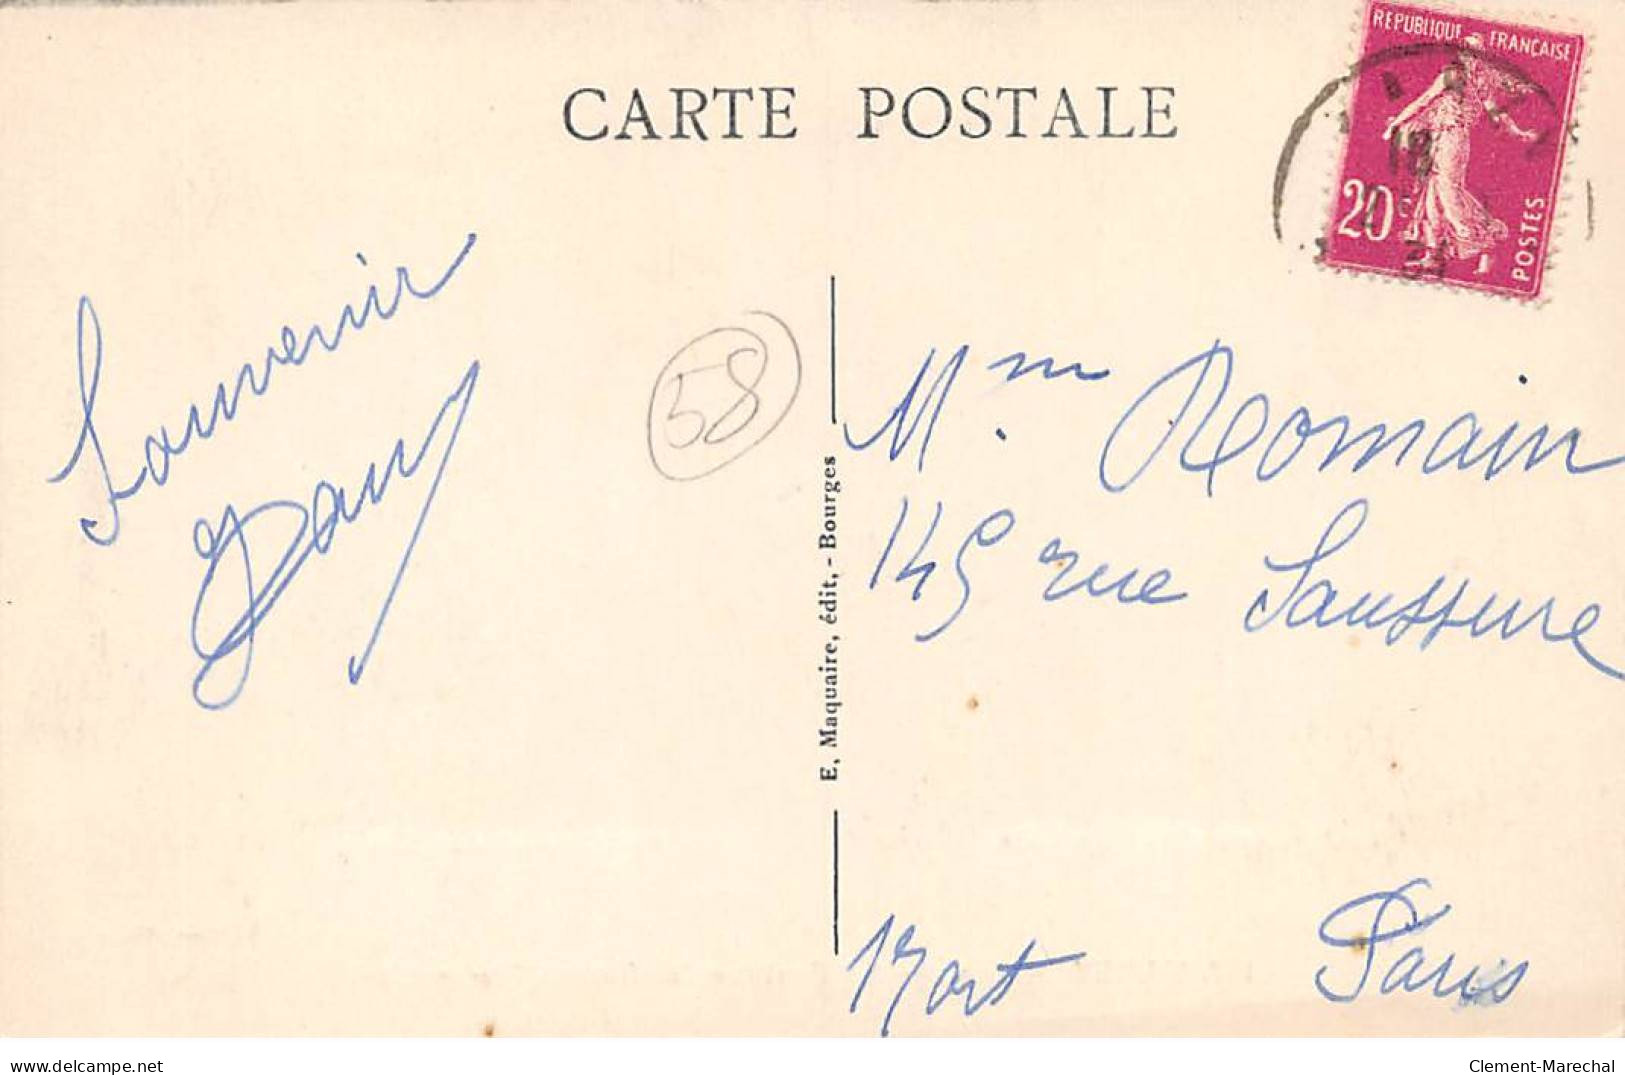 CARTE POSTALE
REPUBLIQUE FRANÇAISE
20 c
POSTES
18
Souvenir
Dany
58
E. Maquaire, édit, - Bourges
Mm. Romain
145 rue Saussure
17 art Paris
delcampe.net
Clement-Marechal